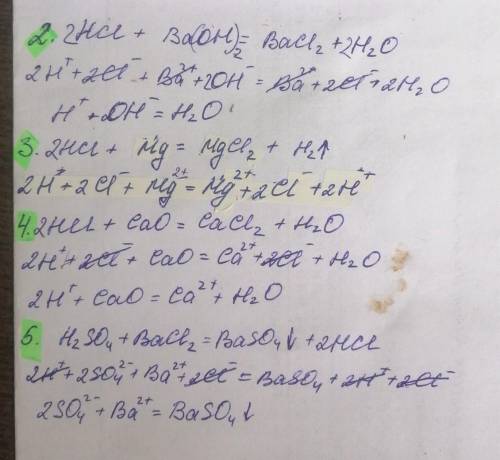 2. 2HCl + Ba(OH)₂ = BaCl₂ + 2H₂O
2H⁺ + 2Cl⁻ + Ba²⁺ + 2OH⁻ = Ba²⁺ + 2Cl⁻ + 2H₂O
H⁺ + OH⁻ = H₂O
3. 2HCl + Mg = MgCl₂ + H₂↑
2H⁺ + 2Cl⁻ + Mg²⁺ = Mg²⁺ + 2Cl⁻ + 2H⁺
4. 2HCl + CaO = CaCl₂ + H₂O
2H⁺ + 2Cl⁻ + CaO = Ca²⁺ + 2Cl⁻ + H₂O
2H⁺ + CaO = Ca²⁺ + H₂O
5. H₂SO₄ + BaCl₂ = BaSO₄↓ + 2HCl
2H⁺ + 2SO₄²⁻ + Ba²⁺ + 2Cl⁻ = BaSO₄ + 2H⁺ + 2Cl⁻
2SO₄²⁻ + Ba²⁺ = BaSO₄↓